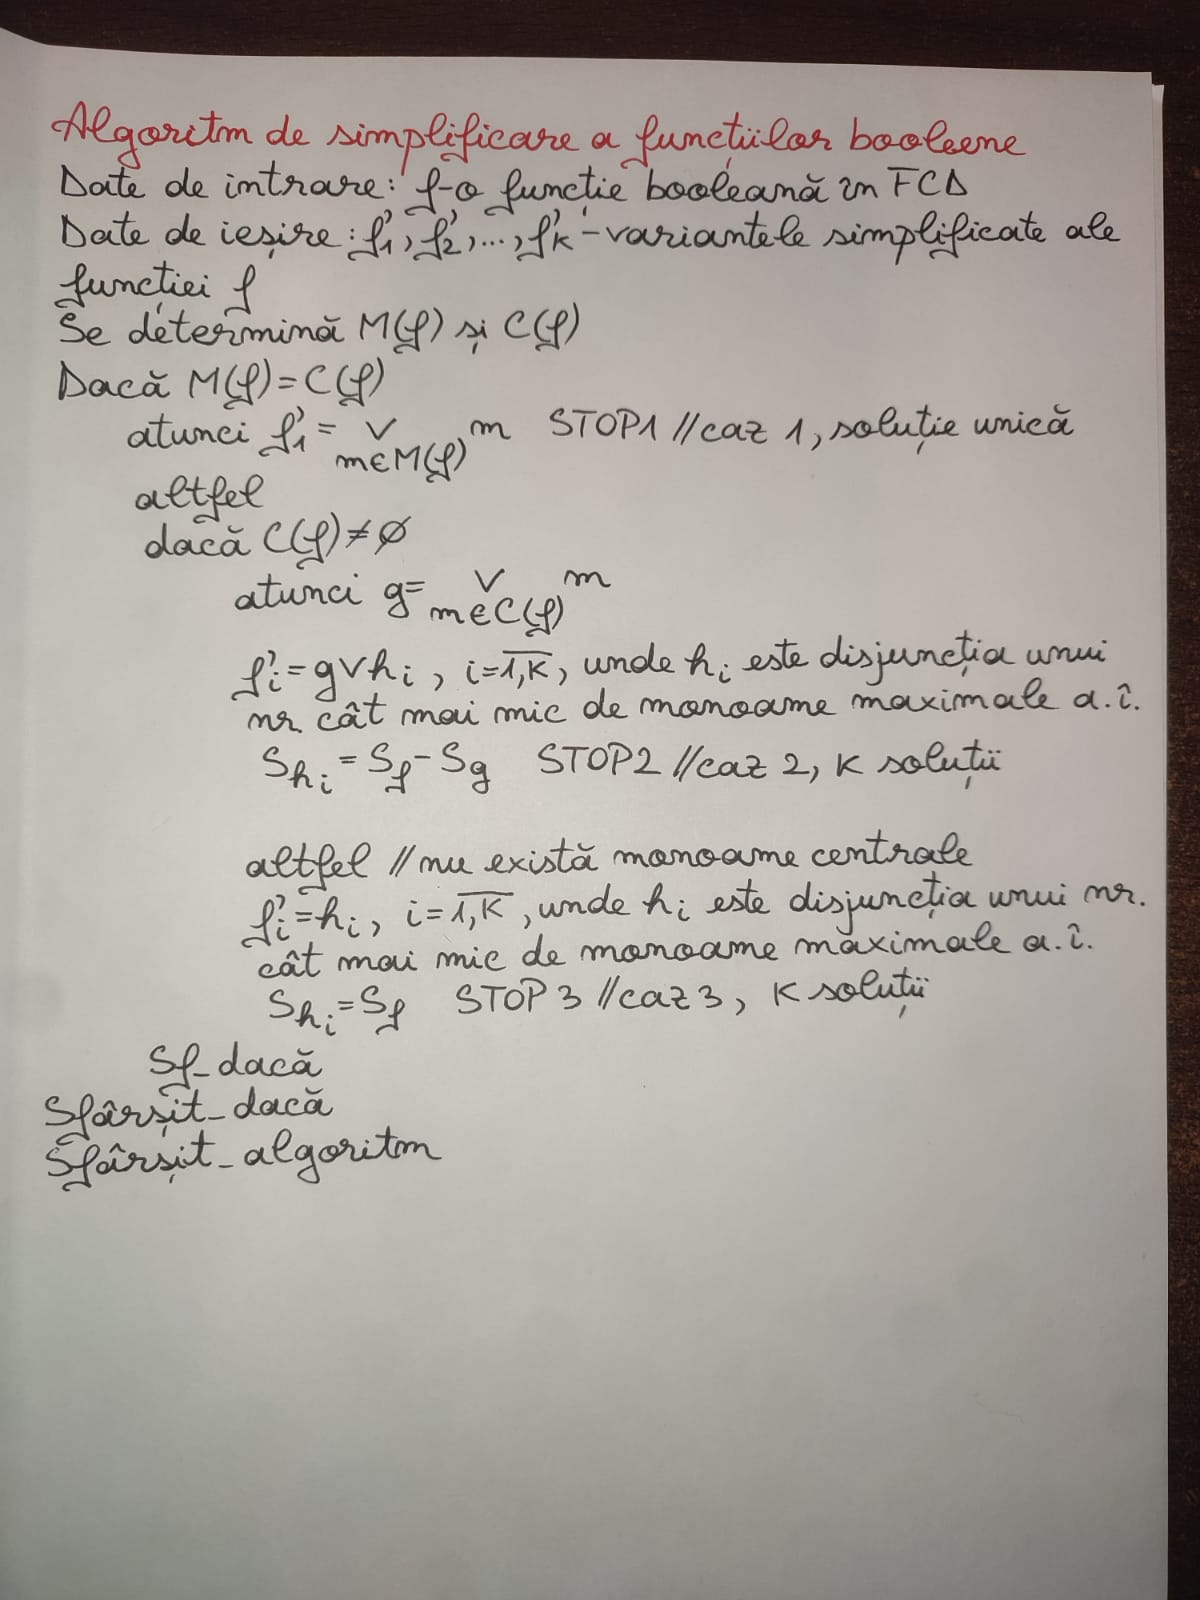 Algoritm de simplificare a funcțiilor booleene
Date de intrare: f-o funcție booleană în FCD
Date de ieșire: f'1, f'2, ..., f'k - variantele simplificate ale
funcției f
Se determină M(f) și C(f)
Dacă M(f) = C(f)
atunci f'1 = ∨ m∈M(f) m STOP1 //caz 1, soluție unică
altfel
dacă C(f) ≠ ∅
atunci g = ∨ m∈C(f) m
f'i = g∨hi, i=1,k, unde hi este disjuncția unui
nr. cât mai mic de monoame maximale a.î.
Shi = Sf - Sg STOP2 //caz 2, k soluții
altfel //nu există monoame centrale
f'i = hi, i=1,k, unde hi este disjuncția unui nr.
cât mai mic de monoame maximale a.î.
Shi = Sf STOP 3 //caz 3, k soluții
Sf_dacă
Sfârșit_dacă
Sfârșit_algoritm